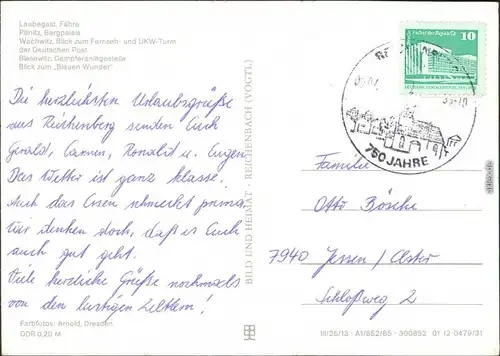 Laubegast, Fähre
Pillnitz, Bergpalais
Wachwitz, Blick zum Fernseh- und UKW-Turm
der Deutschen Post
Blasewitz, Dampferanlegestelle
Blick zum „Blauen Wunder"
Die herzlichsten Urlaubsgrüße
aus Reichenberg senden Euch
Gerald, Carmen, Ronald u. Eugen.
Das Wetter ist ganz klasse.
Auch das Essen schmeckt prima.
Wir denken doch, daß es Euch
auch gut geht.
Viele herzliche Grüße nochmals
von den lustigen Zeltlern!
Farbfotos: Arnold, Dresden
DDR 0,20 M
BILD UND HEIMAT · REICHENBACH (VOGTL)
10
750 JAHRE
Familie
Otto Böschke
7940 Jessen/Elster
Schloßweg 2
III/26/13 · A1/852/85 · 300852 01 12 0479/31